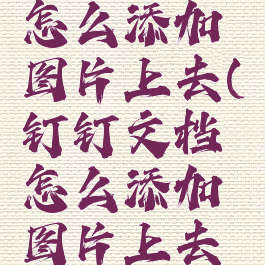 怎么添加
图片上去(
钉钉文档
怎么添加
图片上去